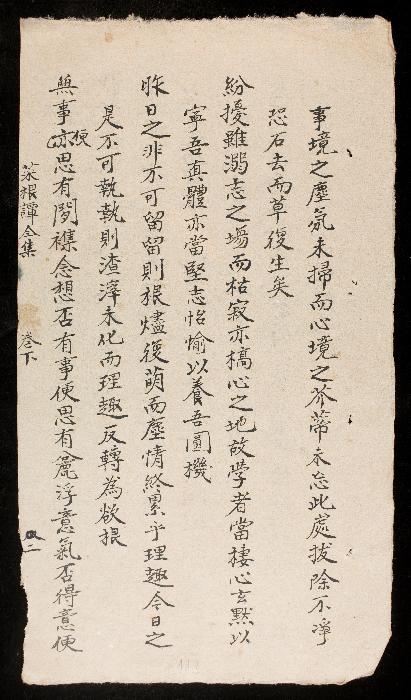 事境之塵氛未掃而心境之芥蒂未忘此處拔除不凈
恐石去而草復生矣
紛擾雖溺志之場而枯寂亦槁心之地故學者當棲心玄默以
寧吾真體亦當堅志怡愉以養吾圓機
昨日之非不可留留則根燼復萌而塵情終累乎理趣今日之
是不可執執則渣滓未化而理趣反轉為欲根
無事便亦思有閒襍念想否有事便思有麄浮意氣否得意便
菜根譚全集
卷下
二